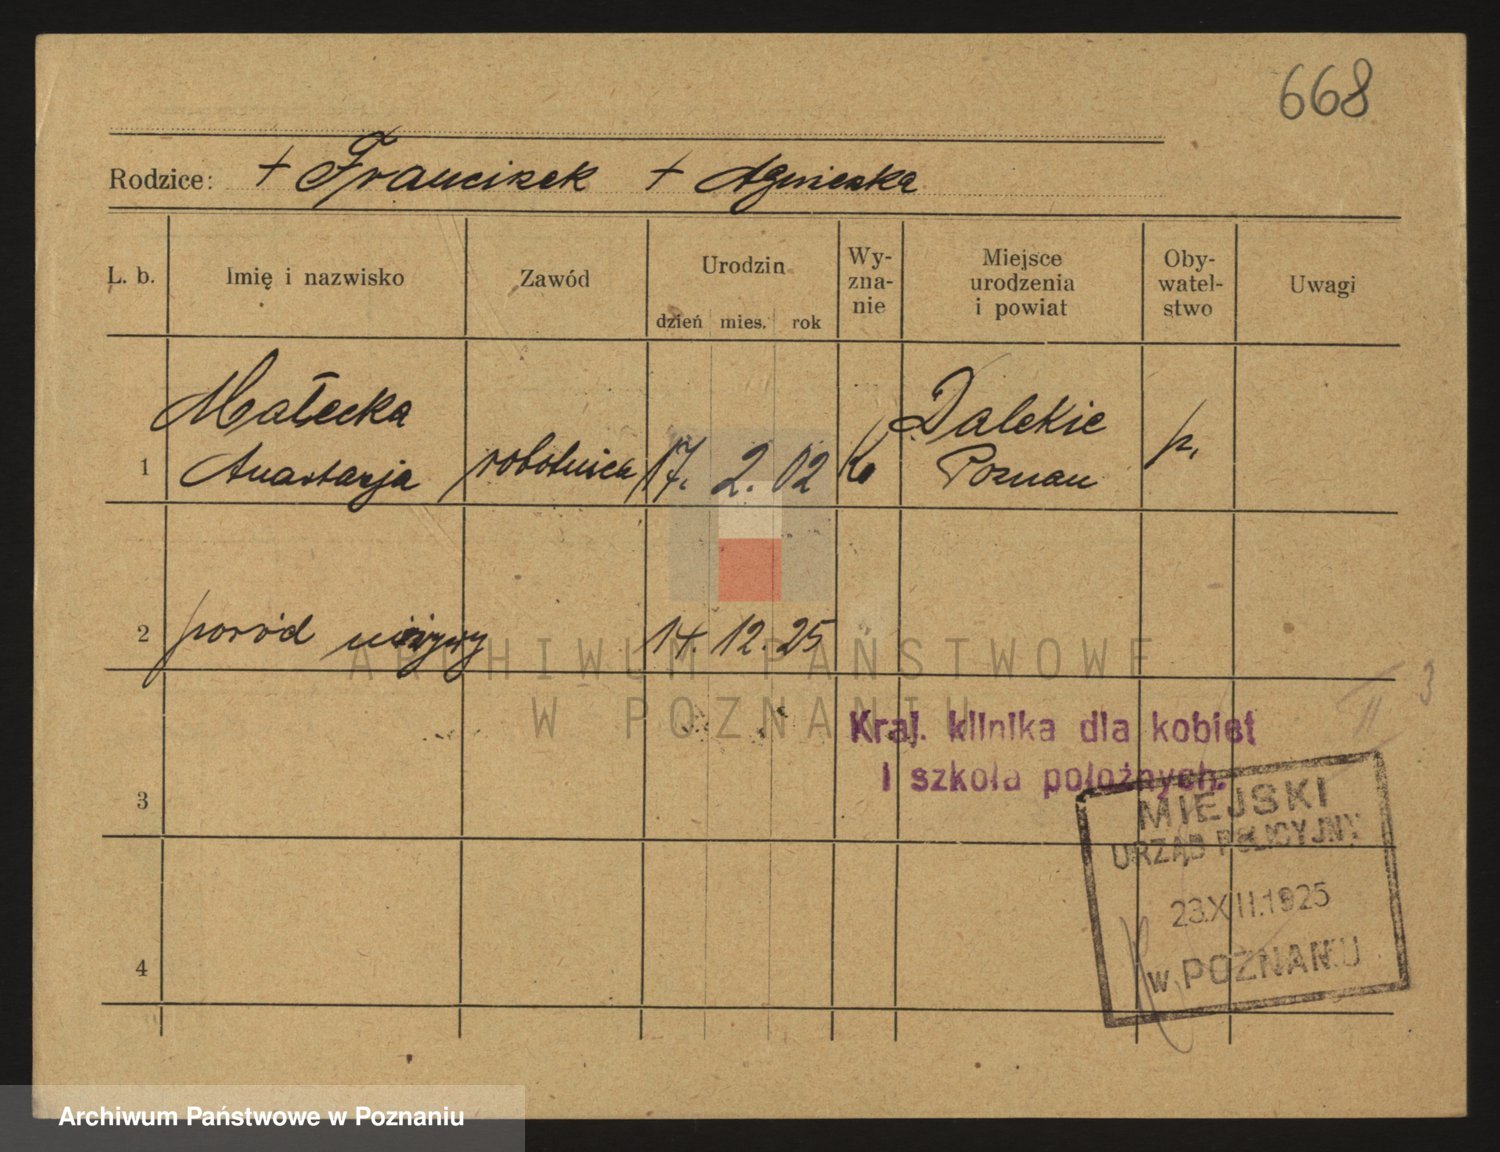 668
Rodzice: + Franciszek + Agnieszka
L. b. Imię i nazwisko Zawód Urodzin Wy-zna-nie Miejsce urodzenia i powiat Oby-watel-stwo Uwagi
dzień mies. rok
Małecka Dalekie
1 Anastazja robotnica 17. 2. 02 k Poznań p.
2 poród nieżywy 14. 12. 25
ARCHIWUM PAŃSTWOWE
W POZNANIU
Kraj. klinika dla kobiet
i szkoła położnych.
3
MIEJSKI
URZĄD POLICYJNY
23.XII.1925
w POZNANIU
4
Archiwum Państwowe w Poznaniu